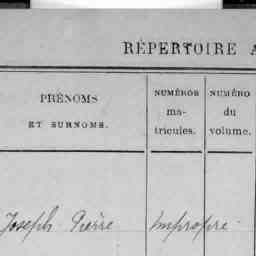 RÉPERTOIRE A
PRÉNOMS
ET SURNOMS.
NUMÉROS
ma-
tricules.
NUMÉRO
du
volume.
Joseph Pierre
Impropre